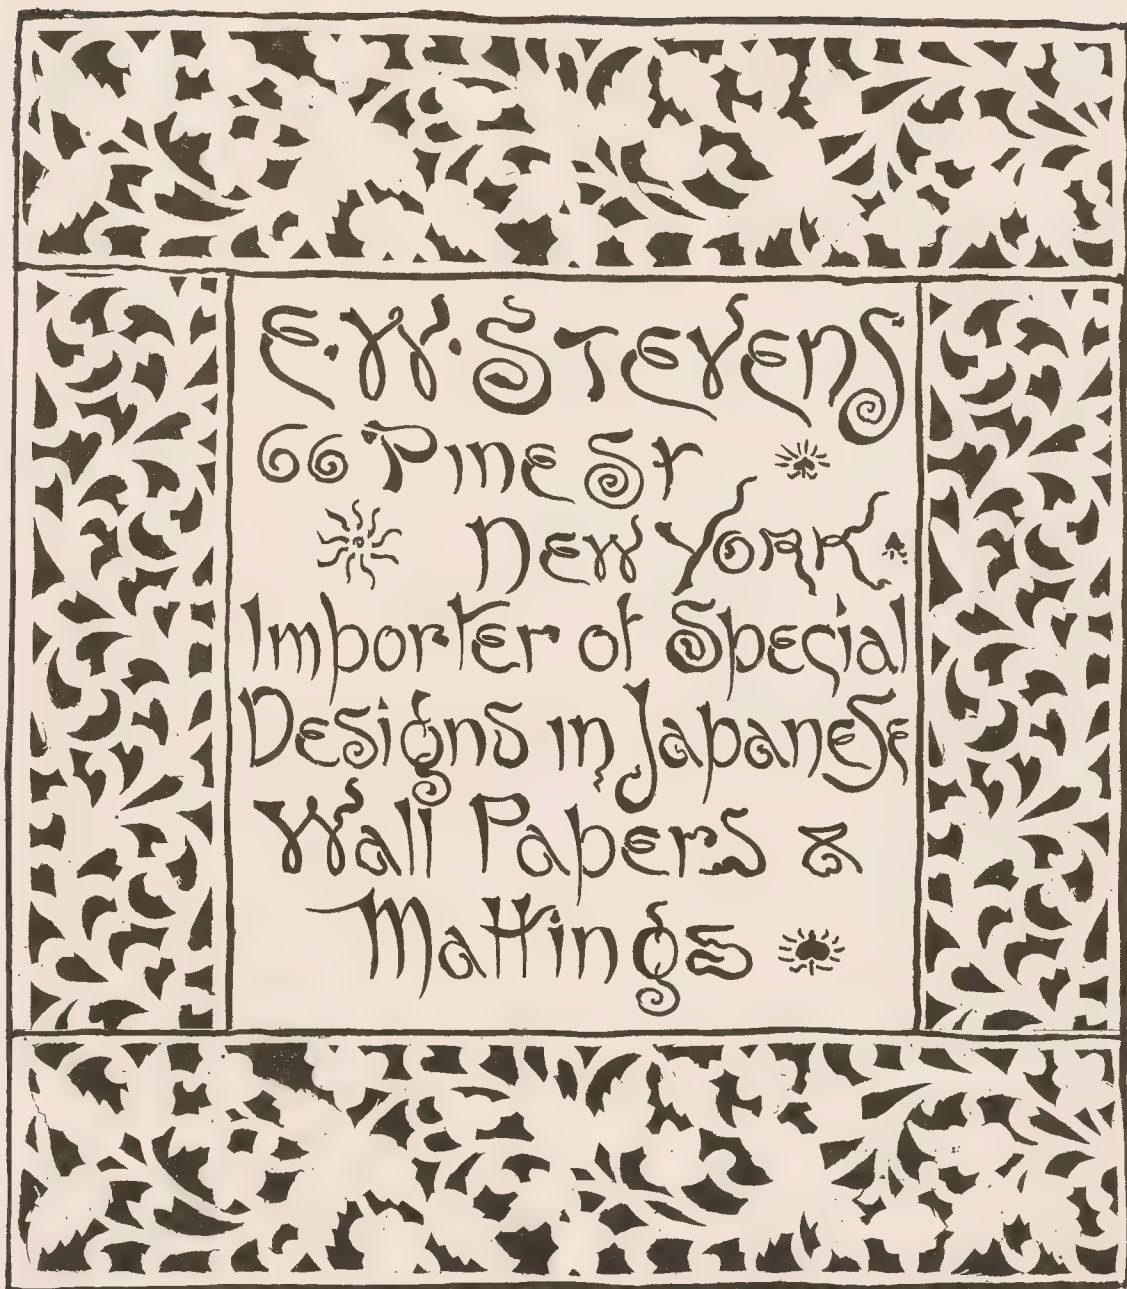 E. W. Stevens
66 Pine St
New York
Importer of Special
Designs in Japanese
Wall Papers &
Mattings